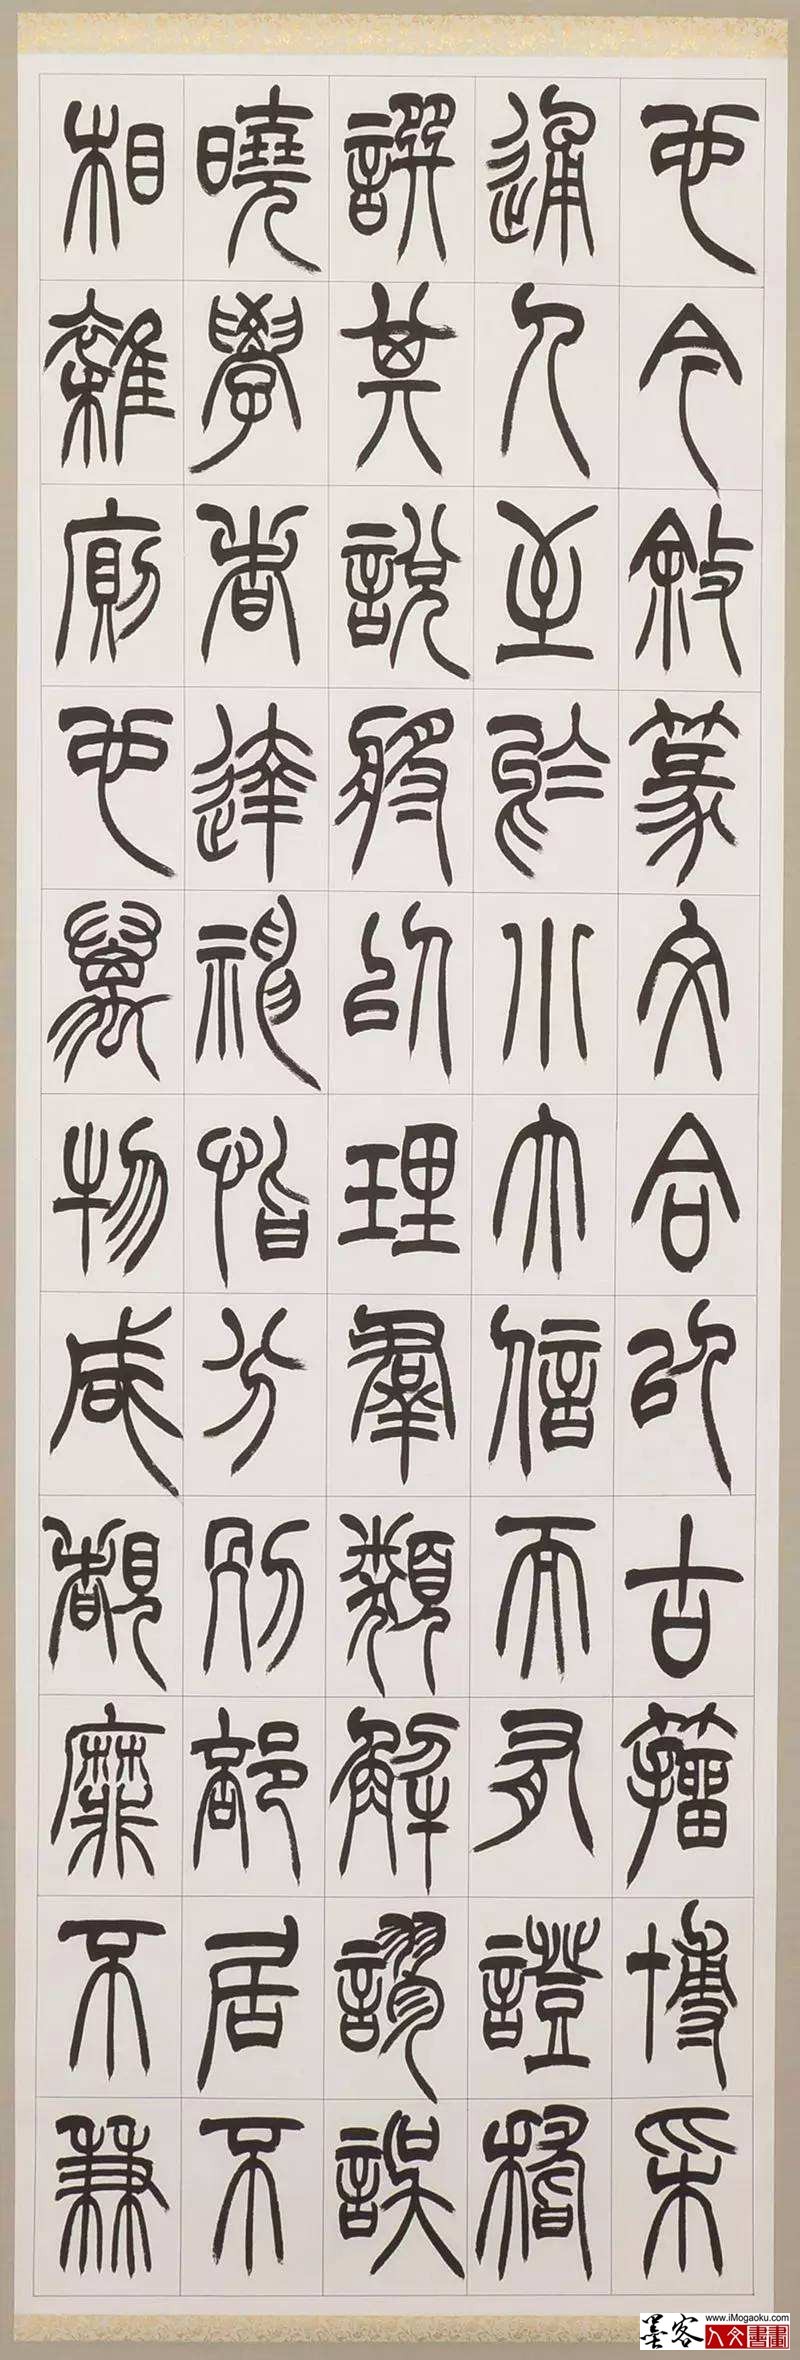 也今敘篆文合以古籀博采
通人至於小大信而有證稽
譔其說將以理羣類解謬誤
曉學者達神恉分別部居不
相雜廁也萬物咸覩靡不兼
墨客 www.iMogaoku.com
人文書畫